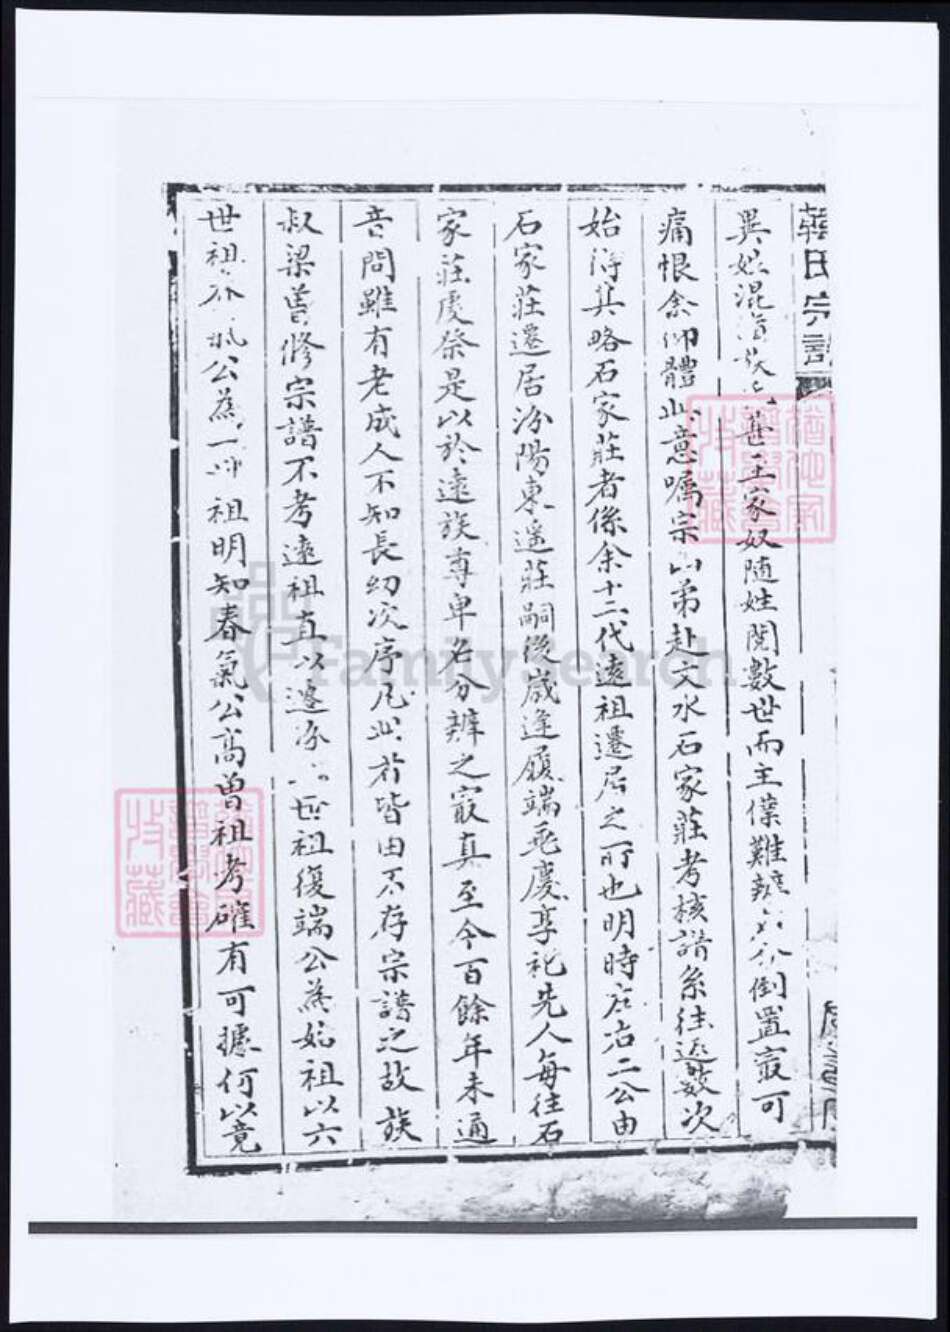 韓氏宗譜
異姓混 甚至家奴隨姓閱數世而主僕難辨 倒置最可
痛恨余仰體此意囑宗 弟赴文水石家莊考核譜系往返數次
始得其略石家莊者係余十二代遠祖遷居之所也明時 二公由
石家莊遷居汾陽東遥莊嗣後歲逢履端 慶享祀先人每往石
家莊慶祭是以於遠族尊卑名分辨之最真至今百餘年未通
音問雖有老成人不知長幼次序凡此者皆由不存宗譜之故族
叔梁曾修宗譜不考遠祖直以遷汾 世祖復端公為始祖以六
世祖 公為一 祖明知春氣公高曾祖考確有可據何以竟
FamilySearch